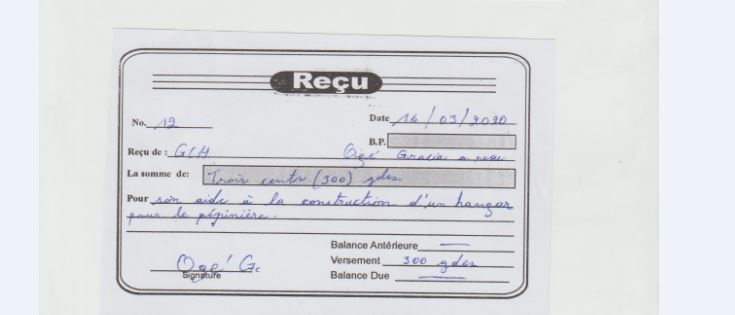 Reçu
No. 12 Date 16/03/2020
B.P.
Reçu de : GCH Ogé Gracia a reçu
La somme de: Trois cents (300) gdes
Pour son aide à la construction d'un hangar
pour le pépinière.
Balance Antérieure —
Ogé Gc Versement 300 gdes
Signature Balance Due —